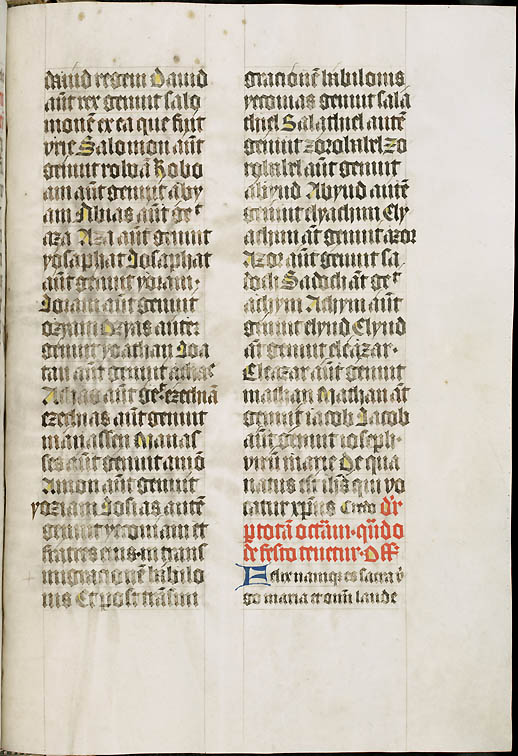 dauid regem Dauid
aūt rex genuit salo
monē ex ea que fuit
vrie Salomon aūt
genuit roboā Robo
am aūt genuit aby
am Abias aūt geᵗ
aza Aza aūt genuit
yosaphat Iosaphat
aūt genuit yoram
Ioram aūt genuit
oziam Ozyas autem
genuit yoathan Ioa
tan aūt genuit achaz
Achas aūt geᵗ ezechiā
ezechias aūt genuit
manassen Manas
ses aūt genuit amō
Amon aūt genuit
yoziam Iosias autē
genuit yeconiam et
fratres eius · in trans
migracionē babilo
nis Et post trāsmi
gracionē babilonis
yeconias genuit sala
thiel Salathiel autē
genuit zorobabel Zo
robabel aūt genuit
abyud Abyud autē
genuit elyachim Ely
achim āt genuit azor
Azor aūt genuit sa
doch Sadoch āt geᵗ
achym Achym aūt
genuit elyud Elyud
āt genuit eleazar ·
Eleazar aūt genuit
mathan Mathan āt
genuit iacob Iacob
aūt genuit ioseph ·
virū marie De qua
natus est ihs̄ qui vo
catur xp̄us Credo dr̄
p totā octām · qn̄do
de festo tenetur · Off
Felix namque es sacra v̄
go maria et omī laude